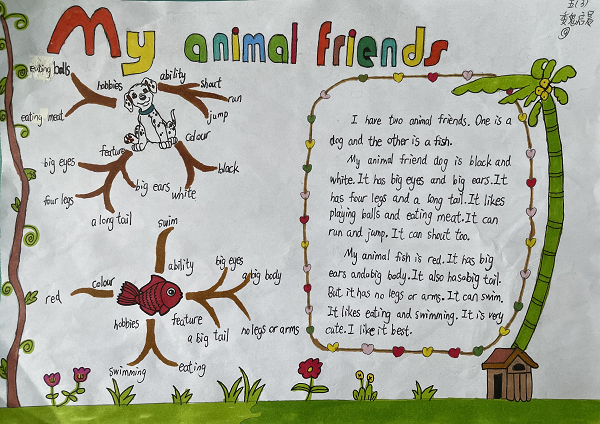 My animal friends
五(3)
eating balls
hobbies
ability
shout
run
jump
eating meat
colour
black
white
feature
big eyes
four legs
a long tail
big ears
swim
ability
colour
red
big eyes
a big body
feature
a big tail
no legs or arms
hobbies
swimming
eating
I have two animal friends. One is a
dog and the other is a fish.
My animal friend dog is black and
white. It has big eyes and big ears. It
has four legs and a long tail. It likes
playing balls and eating meat. It can
run and jump. It can shout too.
My animal fish is red. It has big
ears and a big body. It also has a big tail.
But it has no legs or arms. It can swim.
It likes eating and swimming. It is very
cute. I like it best.